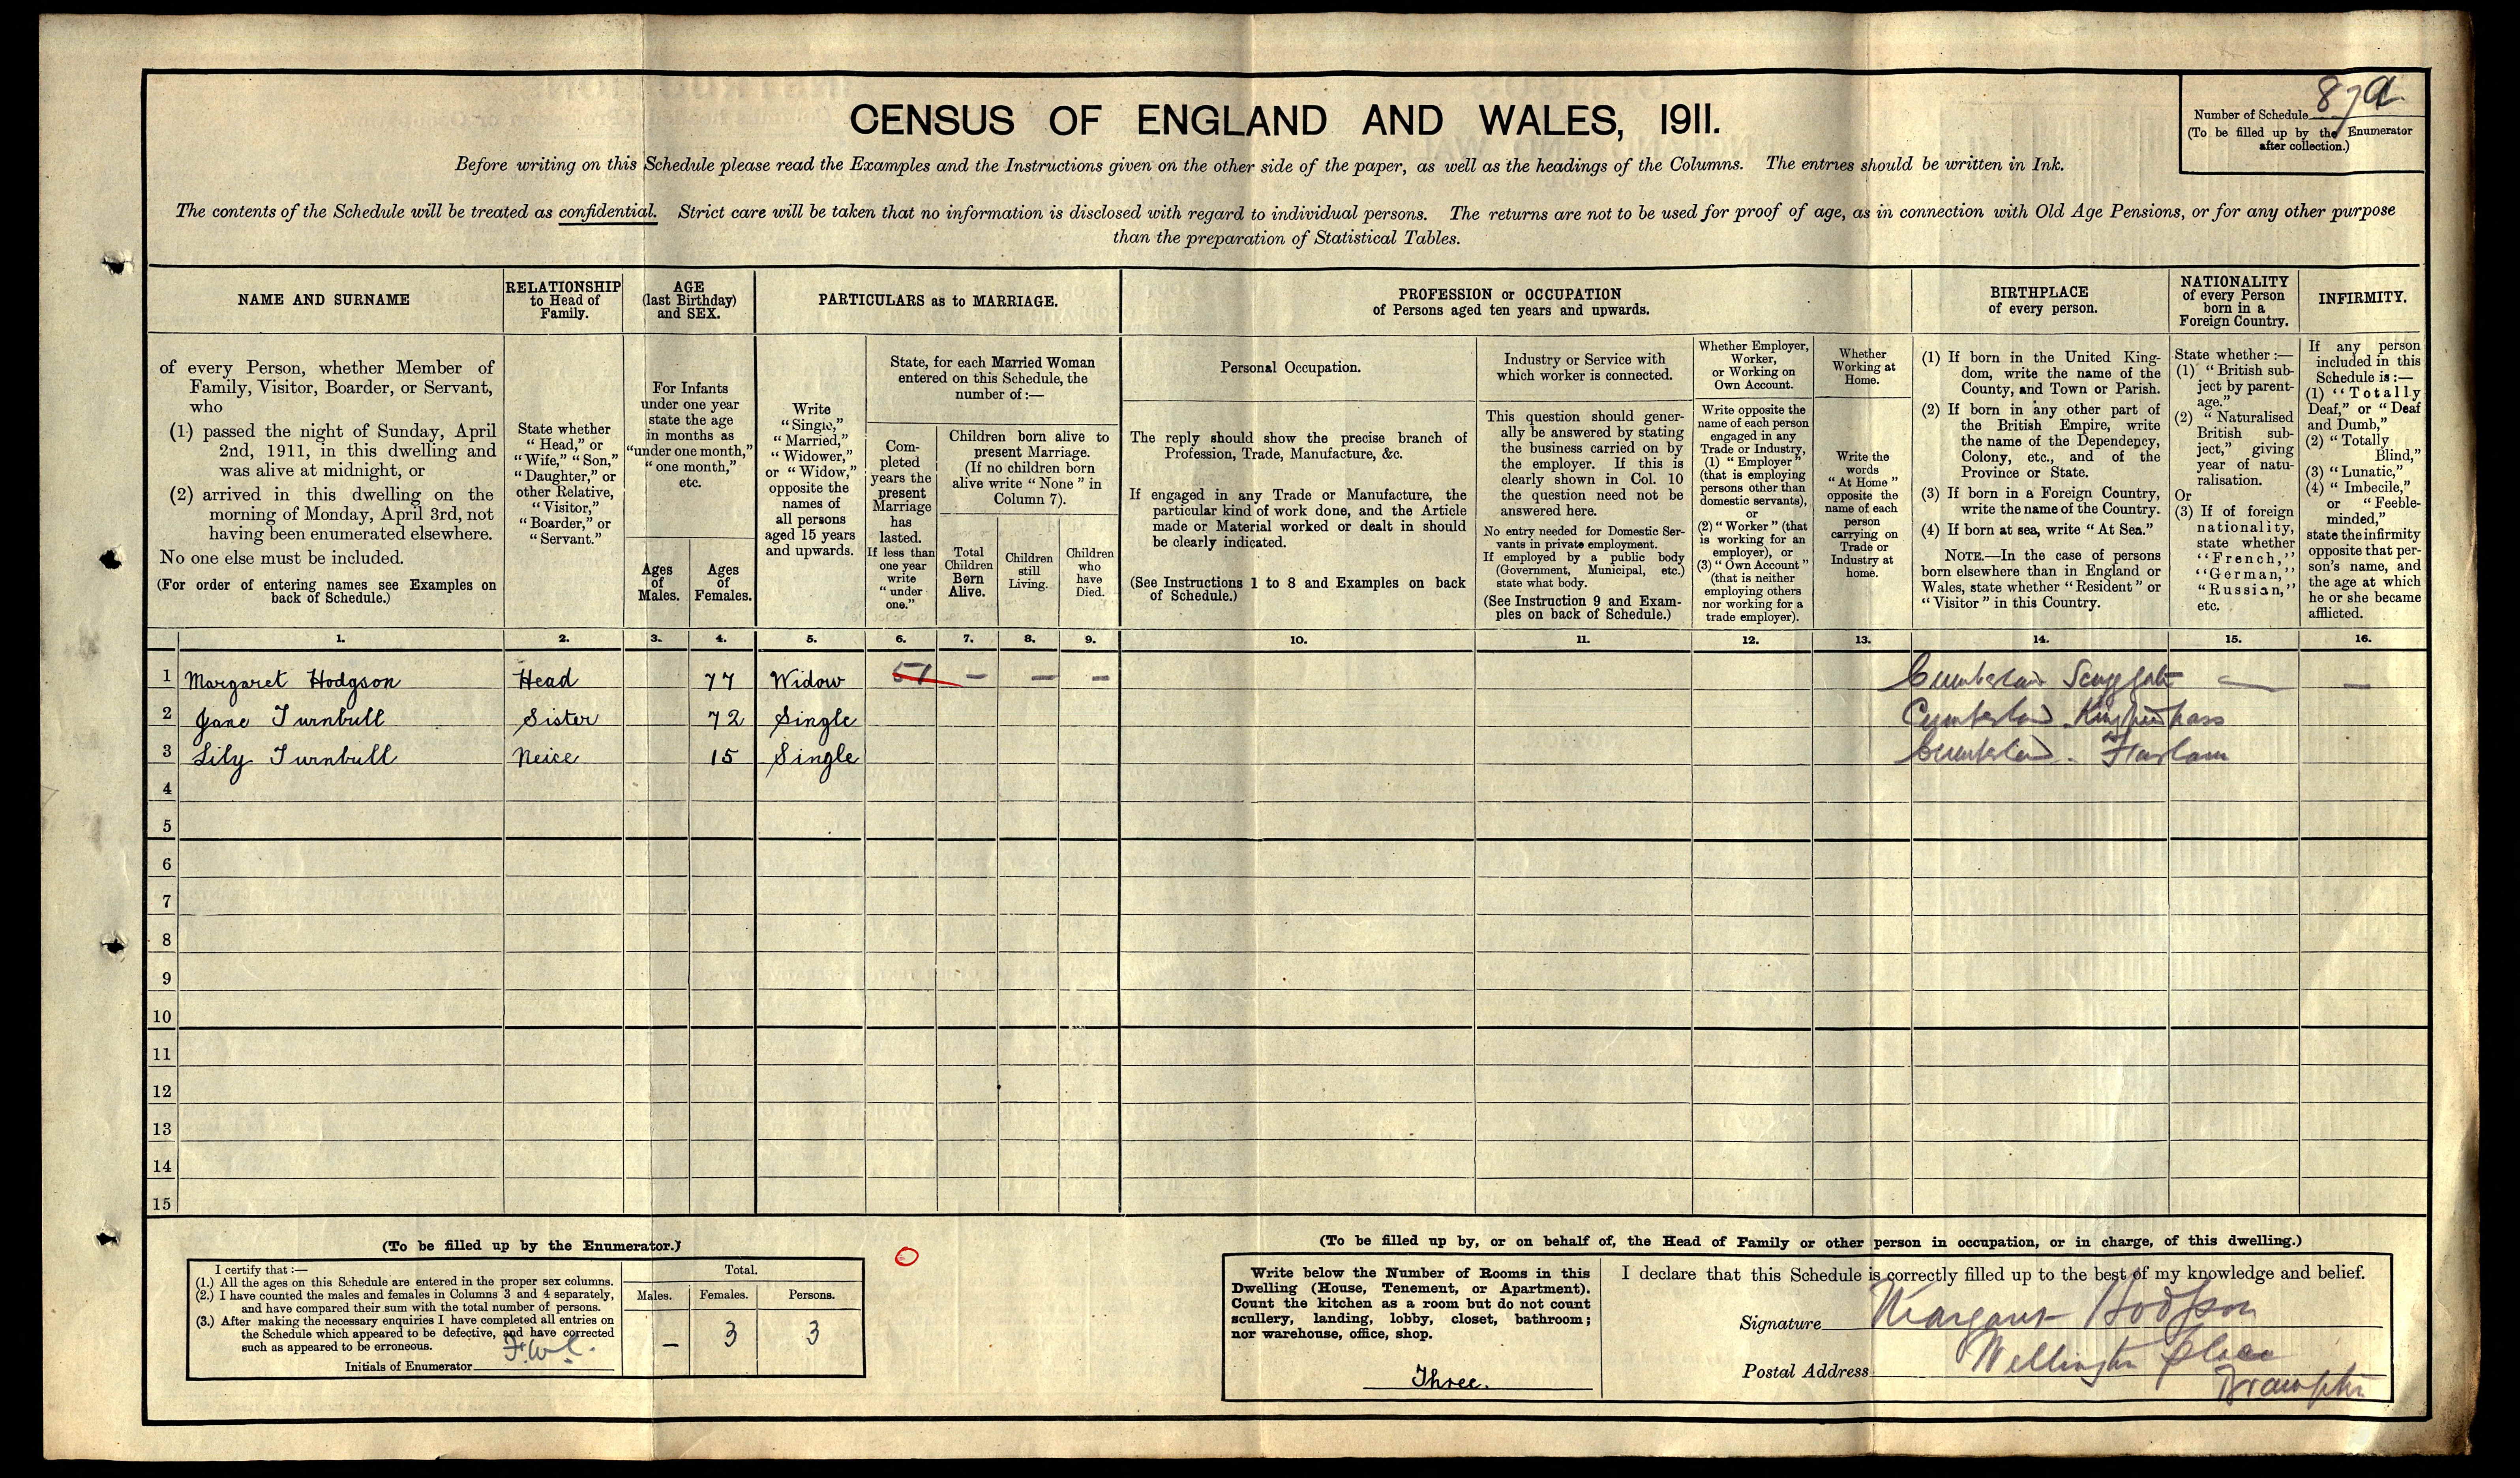 CENSUS OF ENGLAND AND WALES, 1911.
Number of Schedule 87a
(To be filled up by the Enumerator
after collection.)
Before writing on this Schedule please read the Examples and the Instructions given on the other side of the paper, as well as the headings of the Columns. The entries should be written in Ink.
The contents of the Schedule will be treated as confidential. Strict care will be taken that no information is disclosed with regard to individual persons. The returns are not to be used for proof of age, as in connection with Old Age Pensions, or for any other purpose
than the preparation of Statistical Tables.
NAME AND SURNAME
of every Person, whether Member of
Family, Visitor, Boarder, or Servant,
who
(1) passed the night of Sunday, April
2nd, 1911, in this dwelling and
was alive at midnight, or
(2) arrived in this dwelling on the
morning of Monday, April 3rd, not
having been enumerated elsewhere.
No one else must be included.
(For order of entering names see Examples on
back of Schedule.)
RELATIONSHIP
to Head of
Family.
State whether
"Head," or
"Wife," "Son,"
"Daughter," or
other Relative,
"Visitor,"
"Boarder," or
"Servant."
AGE
(last Birthday)
and SEX.
For Infants
under one year
state the age
in months as
"under one month,"
"one month,"
etc.
Ages
of
Males.
Ages
of
Females.
PARTICULARS as to MARRIAGE.
Write
"Single,"
"Married,"
"Widower,"
or "Widow,"
opposite the
names of
all persons
aged 15 years
and upwards.
State, for each Married Woman
entered on this Schedule, the
number of:—
Com-
pleted
years the
present
Marriage
has
lasted.
If less than
one year
write
"under
one."
Children born alive to
present Marriage.
(If no children born
alive write "None" in
Column 7).
Total
Children
Born
Alive.
Children
still
Living.
Children
who
have
Died.
PROFESSION or OCCUPATION
of Persons aged ten years and upwards.
Personal Occupation.
The reply should show the precise branch of
Profession, Trade, Manufacture, &c.
If engaged in any Trade or Manufacture, the
particular kind of work done, and the Article
made or Material worked or dealt in should
be clearly indicated.
(See Instructions 1 to 8 and Examples on back
of Schedule.)
Industry or Service with
which worker is connected.
This question should gener-
ally be answered by stating
the business carried on by
the employer. If this is
clearly shown in Col. 10
the question need not be
answered here.
No entry needed for Domestic Ser-
vants in private employment.
If employed by a public body
(Government, Municipal, etc.)
state what body.
(See Instruction 9 and Exam-
ples on back of Schedule.)
Whether Employer,
Worker,
or Working on
Own Account.
Write opposite the
name of each person
engaged in any
Trade or Industry,
(1) "Employer"
(that is employing
persons other than
domestic servants),
or
(2) "Worker" (that
is working for an
employer), or
(3) "Own Account"
(that is neither
employing others
nor working for a
trade employer).
Whether
Working at
Home.
Write the
words
"At Home"
opposite the
name of each
person
carrying on
Trade or
Industry at
home.
BIRTHPLACE
of every person.
(1) If born in the United King-
dom, write the name of the
County, and Town or Parish.
(2) If born in any other part of
the British Empire, write
the name of the Dependency,
Colony, etc., and of the
Province or State.
(3) If born in a Foreign Country,
write the name of the Country.
(4) If born at sea, write "At Sea."
NOTE.—In the case of persons
born elsewhere than in England or
Wales, state whether "Resident" or
"Visitor" in this Country.
NATIONALITY
of every Person
born in a
Foreign Country.
State whether:—
(1) "British sub-
ject by parent-
age."
(2) "Naturalised
British sub-
ject," giving
year of natu-
ralisation.
Or
(3) If of foreign
nationality,
state whether
"French,"
"German,"
"Russian,"
etc.
INFIRMITY.
If any person
included in this
Schedule is:—
(1) "Totally
Deaf," or "Deaf
and Dumb,"
(2) "Totally
Blind,"
(3) "Lunatic,"
(4) "Imbecile,"
or "Feeble-
minded,"
state the infirmity
opposite that per-
son's name, and
the age at which
he or she became
afflicted.
1. 2. 3. 4. 5. 6. 7. 8. 9. 10. 11. 12. 13. 14. 15. 16.
1 Margaret Hodgson Head 77 Widow 51 — — — Cumberland — —
2 Jane Turnbull Sister 72 Single Cumberland
3 Lily Turnbull Neice 15 Single Cumberland - Farlam
4
5
6
7
8
9
10
11
12
13
14
15
(To be filled up by the Enumerator.)
I certify that:—
(1.) All the ages on this Schedule are entered in the proper sex columns.
(2.) I have counted the males and females in Columns 3 and 4 separately,
and have compared their sum with the total number of persons.
(3.) After making the necessary enquiries I have completed all entries on
the Schedule which appeared to be defective, and have corrected
such as appeared to be erroneous.
Initials of Enumerator
Total.
Males. Females. Persons.
— 3 3
(To be filled up by, or on behalf of, the Head of Family or other person in occupation, or in charge, of this dwelling.)
Write below the Number of Rooms in this
Dwelling (House, Tenement, or Apartment).
Count the kitchen as a room but do not count
scullery, landing, lobby, closet, bathroom;
nor warehouse, office, shop.
Three.
I declare that this Schedule is correctly filled up to the best of my knowledge and belief.
Signature Margaret Hodgson
Postal Address Wellington Place
Brampton